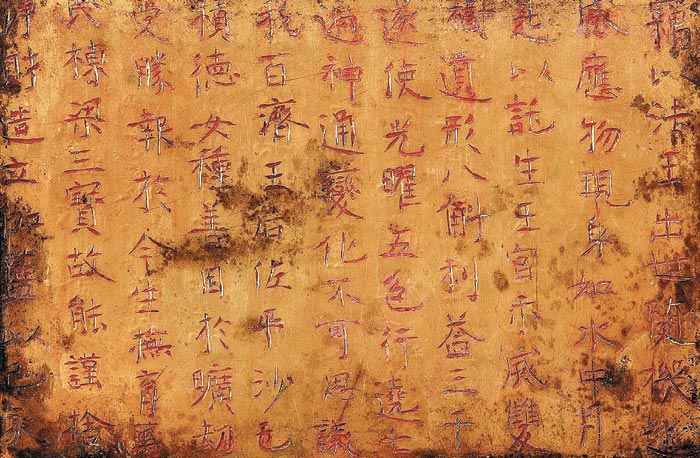 竊以法王出世隨機赴
感應物現身如水中月
是以託生王宮示滅雙
樹遺形八斛利益三千
遂使光曜五色行遶七
遍神通變化不可思議
我百濟王后佐平沙乇
積德女種善因於曠劫
受勝報於今生撫育萬
民棟梁三寶故能謹捨
淨財造立伽藍以己亥